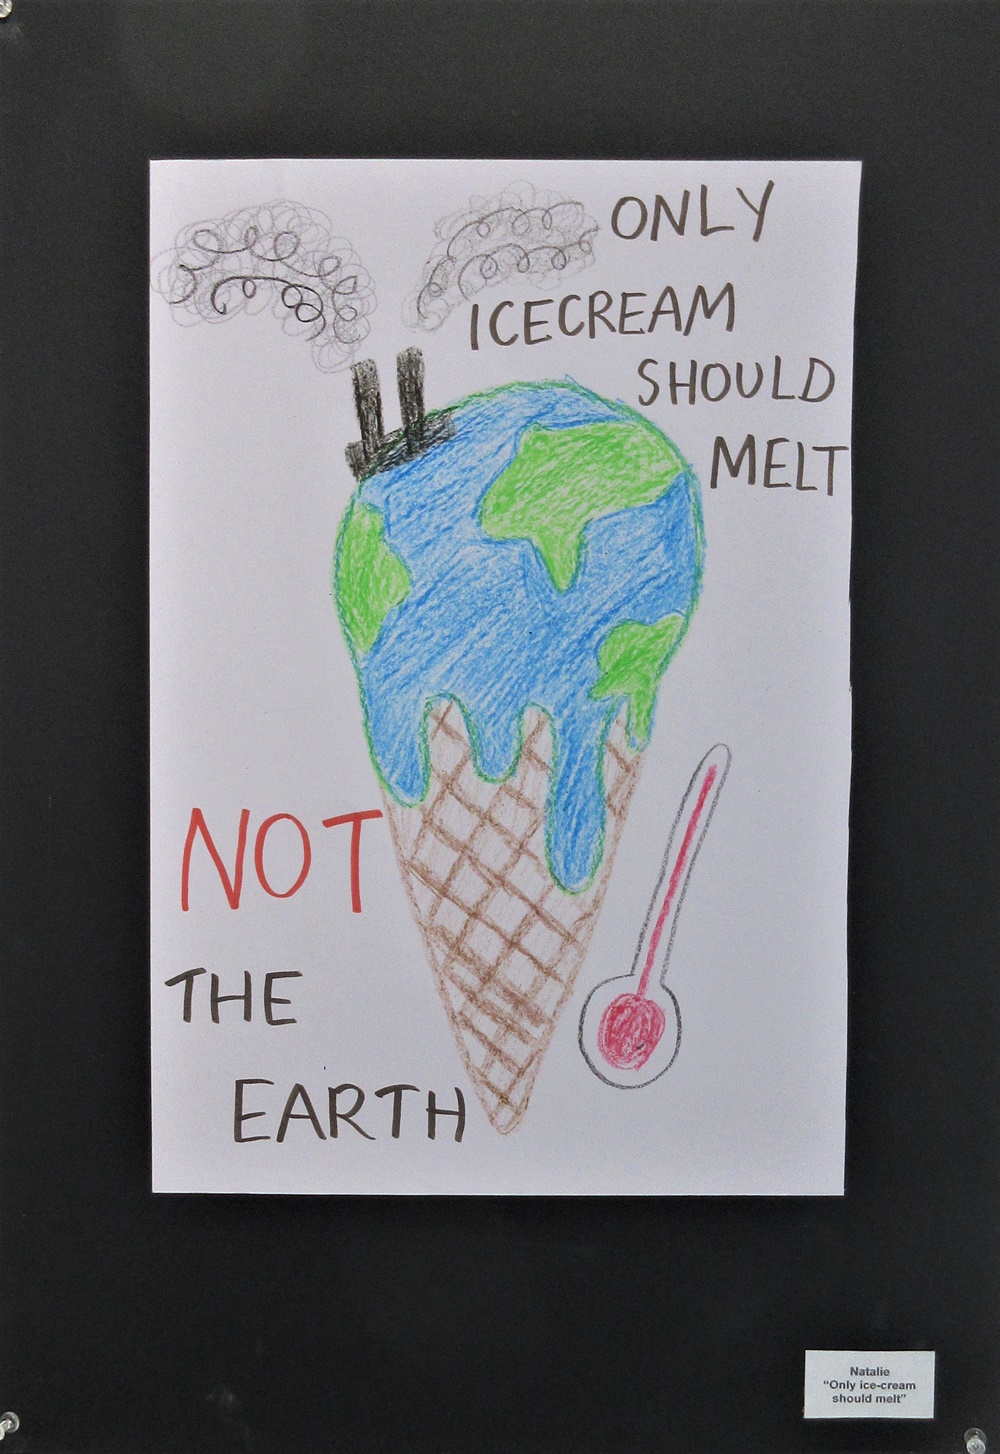 ONLY
ICECREAM
SHOULD
MELT
NOT
THE
EARTH
Natalie
“Only ice-cream
should melt”